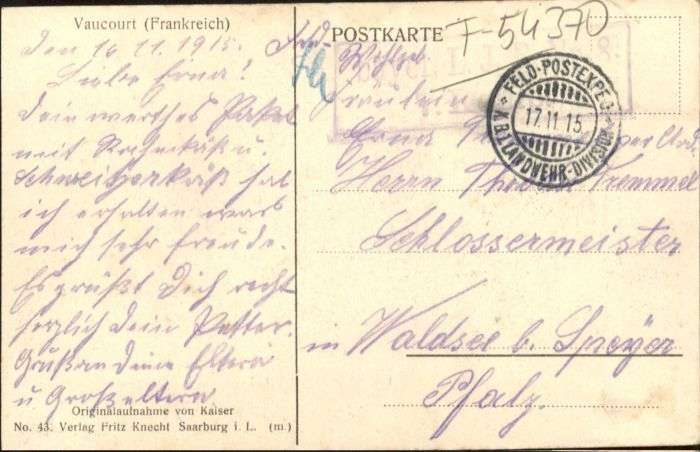 Vaucourt (Frankreich)
Den 16 11. 1915.
Liebe Erna!
Dein werthes Paket
mit Rahmkäß u.
Schweizerkäß hab
ich erhalten
mich sehr freude.
Es grüßt Dich recht
herzlich dein Petter.
Gruß an deine Eltern
u Großeltern
Originalaufnahme von Kaiser
No. 43. Verlag Fritz Knecht Saarburg i. L. (m.)
POSTKARTE
F-54370
FELD-POSTEXPED.
17.11.15.
K.B.1.LANDWEHR-DIVISION
Fräulein
Erna
Herrn Tremmel
Schlossermeister
in Waldsee b. Speyer
Pfalz.